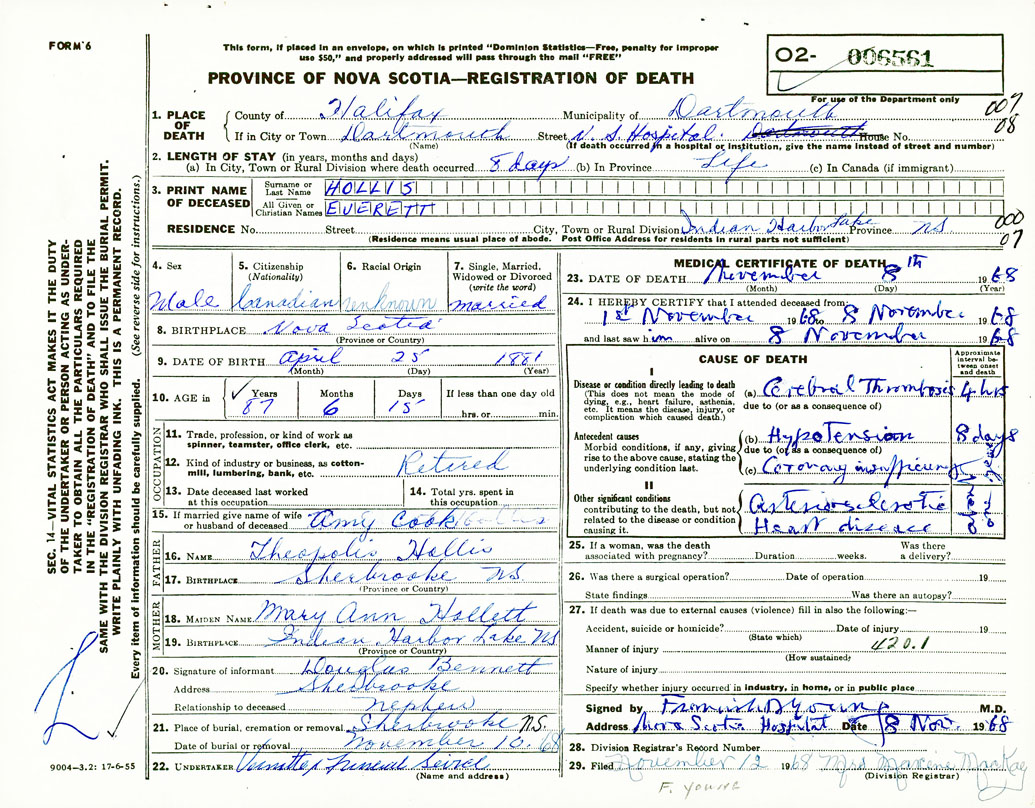 FORM 6
This form, if placed in an envelope, on which is printed "Dominion Statistics—Free, penalty for improper
use $50," and properly addressed will pass through the mail "FREE"
PROVINCE OF NOVA SCOTIA—REGISTRATION OF DEATH
02- 006561
For use of the Department only
007
08
1. PLACE OF DEATH
County of Halifax Municipality of Dartmouth
If in City or Town Dartmouth Street N. S. Hospital. House No.
(Name) (If death occurred in a hospital or institution, give the name instead of street and number)
2. LENGTH OF STAY (in years, months and days)
(a) In City, Town or Rural Division where death occurred 8 days (b) In Province Life (c) In Canada (if immigrant)
3. PRINT NAME OF DECEASED
Surname or Last Name HOLLIS
All Given or Christian Names EVERETT
000
07
RESIDENCE No. Street City, Town or Rural Division Indian Harbor Lake Province NS.
(Residence means usual place of abode. Post Office Address for residents in rural parts not sufficient)
4. Sex Male
5. Citizenship (Nationality) Canadian
6. Racial Origin unknown
7. Single, Married, Widowed or Divorced (write the word) married
8. BIRTHPLACE Nova Scotia
(Province or Country)
9. DATE OF BIRTH April 25 1881
(Month) (Day) (Year)
10. AGE in Years 87 Months 6 Days 15 If less than one day
hrs. or min.
OCCUPATION
11. Trade, profession, or kind of work as
spinner, teamster, office clerk, etc.
12. Kind of industry or business, as cotton-
mill, lumbering, bank, etc. Retired
13. Date deceased last worked
at this occupation
14. Total yrs. spent in
this occupation
15. If married give name of wife
or husband of deceased Amy Cook
FATHER
16. NAME Theopolis Hollis
17. BIRTHPLACE Sherbrooke NS.
(Province or Country)
MOTHER
18. MAIDEN NAME Mary Ann Hollett
19. BIRTHPLACE Indian Harbor Lake NS
(Province or Country)
20. Signature of informant Douglas Bennett
Address Sherbrooke
Relationship to deceased nephew
21. Place of burial, cremation or removal Sherbrooke N.S.
Date of burial or removal November 10. 68
22. UNDERTAKER Funeral
(Name and address)
MEDICAL CERTIFICATE OF DEATH
23. DATE OF DEATH November 8th 1968
(Month) (Day) (Year)
24. I HEREBY CERTIFY that I attended deceased from
1st November 1968 to 8 November 1968
and last saw him alive on 8 November 1968
CAUSE OF DEATH
Approximate interval be-tween onset and death
I
Disease or condition directly leading to death
(This does not mean the mode of dying, e.g., heart failure, asthenia, etc. It means the disease, injury, or complication which caused death.)
(a) Cerebral Thrombosis 4 hrs
due to (or as a consequence of)
Antecedent causes
Morbid conditions, if any, giving rise to the above cause, stating the underlying condition last.
(b) Hypotension 8 days
due to (or as a consequence of)
(c) Coronary insufficiency
II
Other significant conditions
contributing to the death, but not related to the disease or condition causing it.
Arteriosclerotic
Heart disease
25. If a woman, was the death
associated with pregnancy? Duration weeks. Was there a delivery?
26. Was there a surgical operation? Date of operation 19
State findings Was there an autopsy?
27. If death was due to external causes (violence) fill in also the following:—
Accident, suicide or homicide? Date of injury 19
(State which)
Manner of injury 420.1
(How sustained)
Nature of injury
Specify whether injury occurred in industry, in home, or in public place
Signed by Young M.D.
Address Nova Scotia Hospital Date 8 Nov. 1968
28. Division Registrar's Record Number
29. Filed November 12 1968 Mrs Maxine MacKay
(Division Registrar)
F. YOUNG
SEC. 14—VITAL STATISTICS ACT MAKES IT THE DUTY
OF THE UNDERTAKER OR PERSON ACTING AS UNDER-
TAKER TO OBTAIN ALL THE PARTICULARS REQUIRED
IN THE "REGISTRATION OF DEATH" AND TO FILE THE
SAME WITH THE DIVISION REGISTRAR WHO SHALL ISSUE THE BURIAL PERMIT.
WRITE PLAINLY WITH UNFADING INK. THIS IS A PERMANENT RECORD.
Every item of information should be carefully supplied. (See reverse side for instructions.)
9004—3.2: 17-6-55